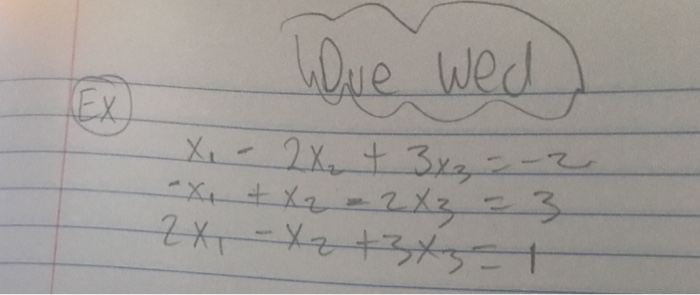 Due Wed
Ex
x₁ - 2x₂ + 3x₃ = -2
-x₁ + x₂ - 2x₃ = 3
2x₁ - x₂ + 3x₃ = 1